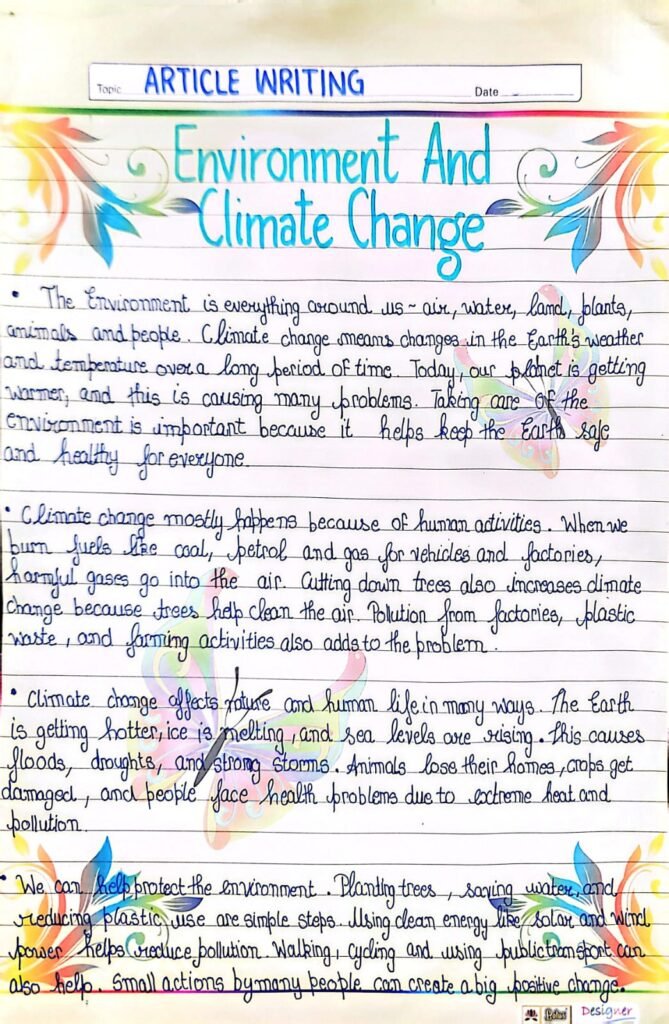 Topic ARTICLE WRITING Date
Environment And
Climate Change
• The Environment is everything around us ~ air, water, land, plants,
animals and people. Climate change means changes in the Earth's weather
and temperature over a long period of time. Today, our planet is getting
warmer, and this is causing many problems. Taking care of the
environment is important because it helps keep the Earth safe
and healthy for everyone.
• Climate change mostly happens because of human activities. When we
burn fuels like coal, petrol and gas for vehicles and factories,
harmful gases go into the air. Cutting down trees also increases climate
change because trees help clean the air. Pollution from factories, plastic
waste, and farming activities also adds to the problem.
• Climate change affects nature and human life in many ways. The Earth
is getting hotter, ice is melting, and sea levels are rising. This causes
floods, droughts, and strong storms. Animals lose their homes, crops get
damaged, and people face health problems due to extreme heat and
pollution.
• We can help protect the environment. Planting trees, saving water, and
reducing plastic use are simple steps. Using clean energy like solar and wind
power helps reduce pollution. Walking, cycling and using public transport can
also help. Small actions by many people can create a big positive change.
Designer